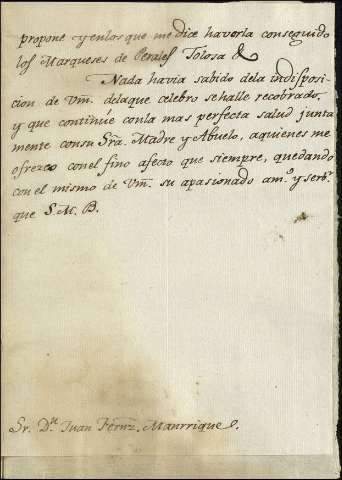 propone y enlos que me dice haverla conseguido
los Marqueses de Perales Tolosa &
Nada havia sabido dela indisposi
cion de Vm̃. delaque celebro sehalle recobrado,
y que continùe conla mas perfecta salud junta
mente consu Sr̃a. Madre y Abuelo, aquienes me
ofrezco conel fino afecto que siempre, quedando
con el mismo de Vm̃. su apasionado am.º y serv.r
que S. M. B.
Sr. D.n Juan Fernz. Manrrique.